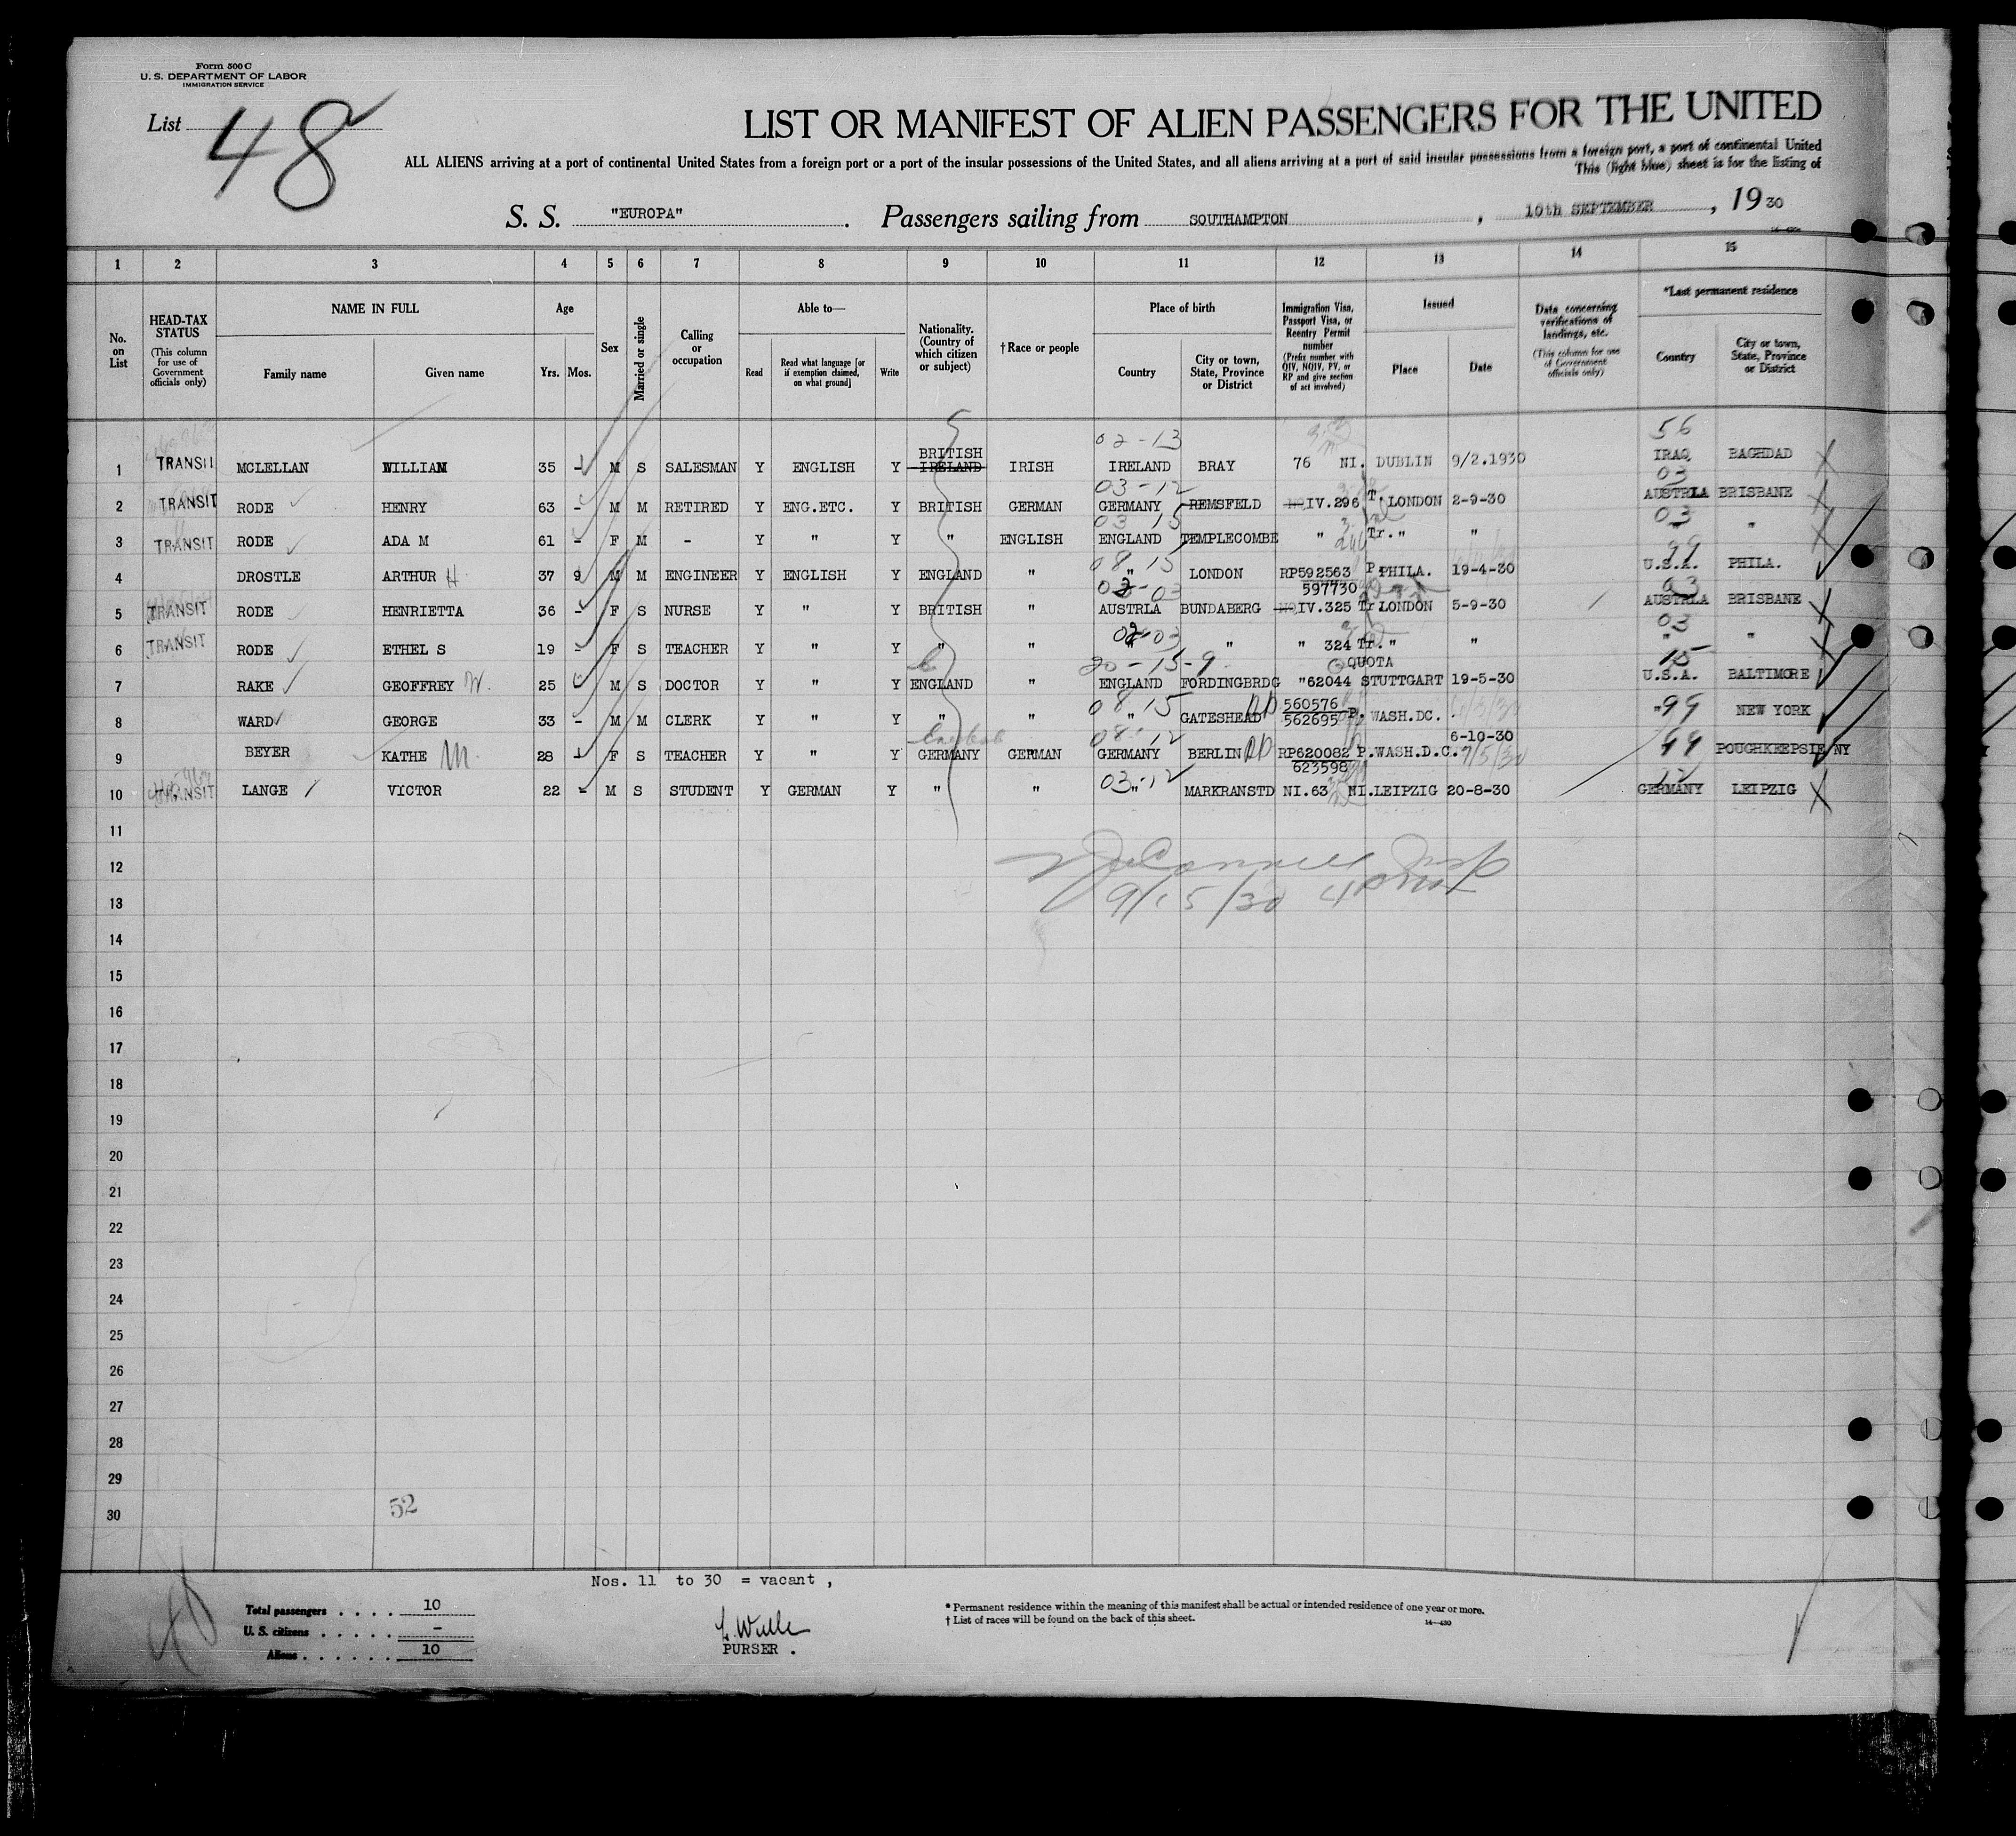 Form 500 C
U. S. DEPARTMENT OF LABOR
IMMIGRATION SERVICE
List 48
LIST OR MANIFEST OF ALIEN PASSENGERS FOR THE UNITED
ALL ALIENS arriving at a port of continental United States from a foreign port or a port of the insular possessions of the United States, and all aliens arriving at a port of said insular possessions from a foreign port, a port of continental United
This (light blue) sheet is for the listing of
S. S. "EUROPA". Passengers sailing from SOUTHAMPTON, 10th SEPTEMBER, 1930
1 2 3 4 5 6 7 8 9 10 11 12 13 14 15
No. on List
HEAD-TAX STATUS (This column for use of Government officials only)
NAME IN FULL Family name Given name
Age Yrs. Mos.
Sex
Married or single
Calling or occupation
Able to— Read Read what language [or if exemption claimed, on what ground] Write
Nationality. (Country of which citizen or subject)
†Race or people
Place of birth Country City or town, State, Province or District
Immigration Visa, Passport Visa, or Reentry Permit number (Prefix number with QIV, NQIV, PV, or RP and give section of act involved)
Issued Place Date
Data concerning verifications of landings, etc. (This column for use of Government officials only)
*Last permanent residence Country City or town, State, Province or District
02-13 56
1 TRANSIT MCLELLAN WILLIAM 35 - M S SALESMAN Y ENGLISH Y BRITISH IRELAND IRISH IRELAND BRAY 76 NI. DUBLIN 9/2.1930 IRAQ BAGHDAD
03-12 03
2 TRANSIT RODE HENRY 63 - M M RETIRED Y ENG.ETC. Y BRITISH GERMAN GERMANY REMSFELD IV.296 T. LONDON 2-9-30 AUSTRLA BRISBANE
03 15 03
3 TRANSIT RODE ADA M 61 - F M - Y " Y " ENGLISH ENGLAND TEMPLECOMBE " Tr. " " "
08-15 99
4 DROSTLE ARTHUR H 37 9 M M ENGINEER Y ENGLISH Y ENGLAND " " LONDON RP592563 597730 P. PHILA. 19-4-30 U.S.A. PHILA.
03-03 03
5 TRANSIT RODE HENRIETTA 36 - F S NURSE Y " Y BRITISH " AUSTRLA BUNDABERG IV.325 Tr. LONDON 5-9-30 AUSTRLA BRISBANE
03-03 03
6 TRANSIT RODE ETHEL S 19 - F S TEACHER Y " Y " " " " " 324 Tr. " " " "
20-15-9 15
7 RAKE GEOFFREY W. 25 M S DOCTOR Y " Y ENGLAND " ENGLAND FORDINGBRDG "62044 QUOTA STUTTGART 19-5-30 U.S.A. BALTIMORE
08 15 99
8 WARD GEORGE 33 - M M CLERK Y " Y " " " GATESHEAD 560576 562695 P. WASH.DC. " NEW YORK
08-12 99
9 BEYER KATHE M. 28 - F S TEACHER Y " Y GERMANY GERMAN GERMANY BERLIN RP620082 623598 P.WASH.D.C. 6-10-30 POUGHKEEPSIE NY
03-12 12
10 TRANSIT LANGE VICTOR 22 - M S STUDENT Y GERMAN Y " " " MARKRANSTD NI.63 NI.LEIPZIG 20-8-30 GERMANY LEIPZIG
11
12
13 9/15/30
14
15
16
17
18
19
20
21
22
23
24
25
26
27
28
29
30
52
Nos. 11 to 30 = vacant ,
Total passengers . . . . 10
U. S. citizens . . . . . -
Aliens . . . . . . 10
PURSER .
* Permanent residence within the meaning of this manifest shall be actual or intended residence of one year or more.
† List of races will be found on the back of this sheet.
14—430